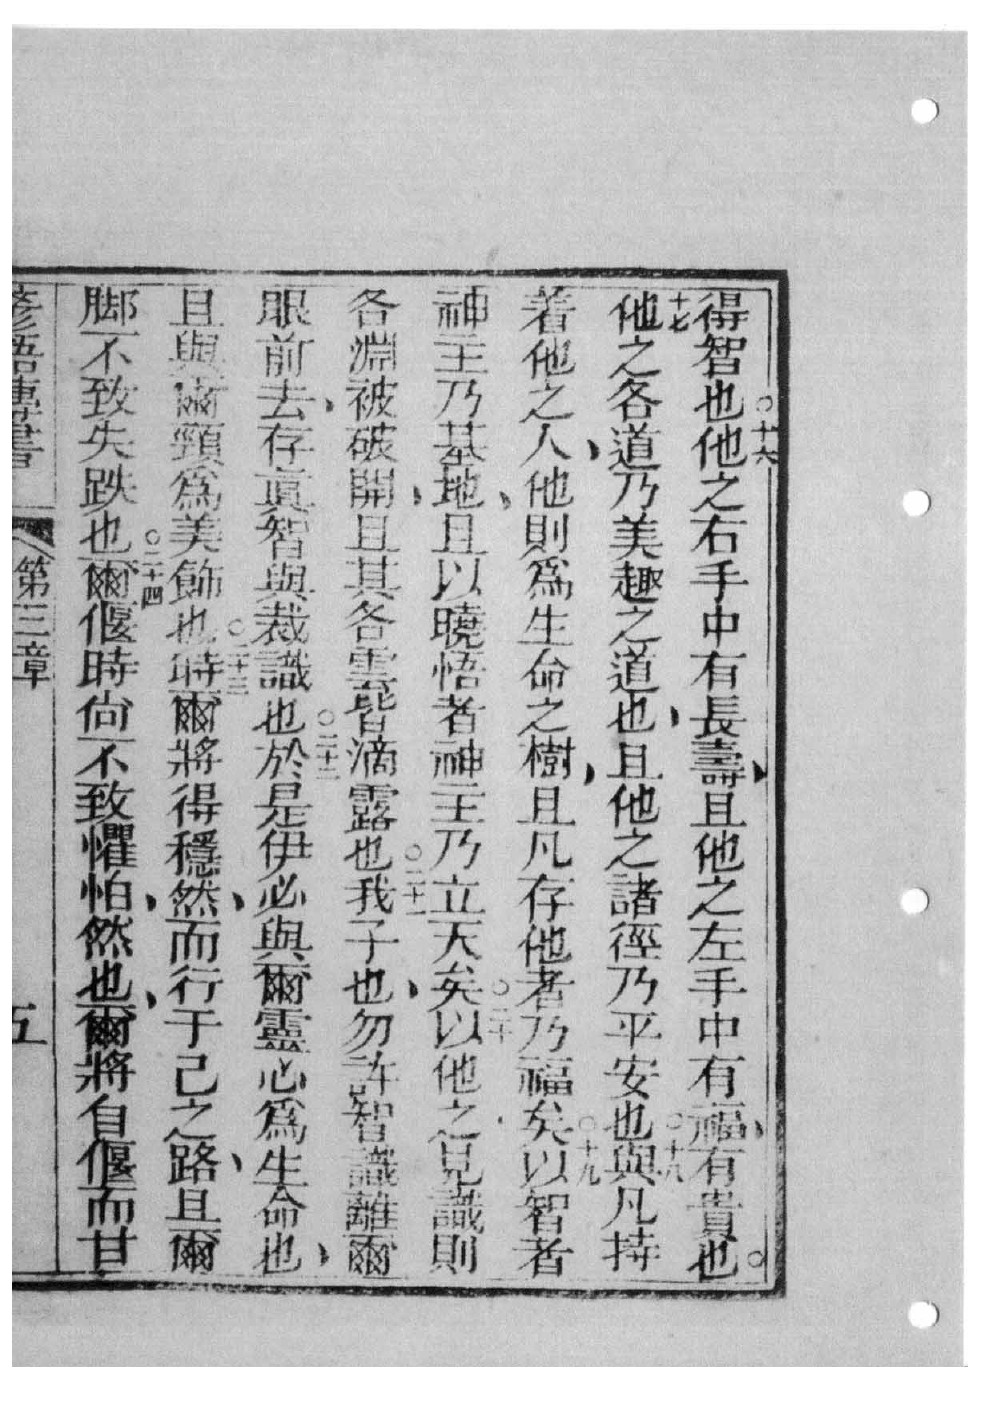 得智也○十六他之右手中有長壽且他之左手中有福有貴也○
十七他之各道乃美趣之道也且他之諸徑乃平安也○十八與凡持
着他之人他則爲生命之樹且凡存他者乃福矣○十九以智者
神主乃基地且以曉悟者神主乃立天矣○二十以他之見識則
各淵被破開且其各雲皆滴露也○二十一我子也勿許智識離爾
眼前去存眞智與裁識也○二十二於是伊必與爾靈心爲生命也
且與爾頸爲美飾也○二十三時爾將得穩然而行于己之路且爾
脚不致失跌也○二十四爾偃時尙不致懼怕然也爾將自偃而甘
諺語傳書 第三章 五